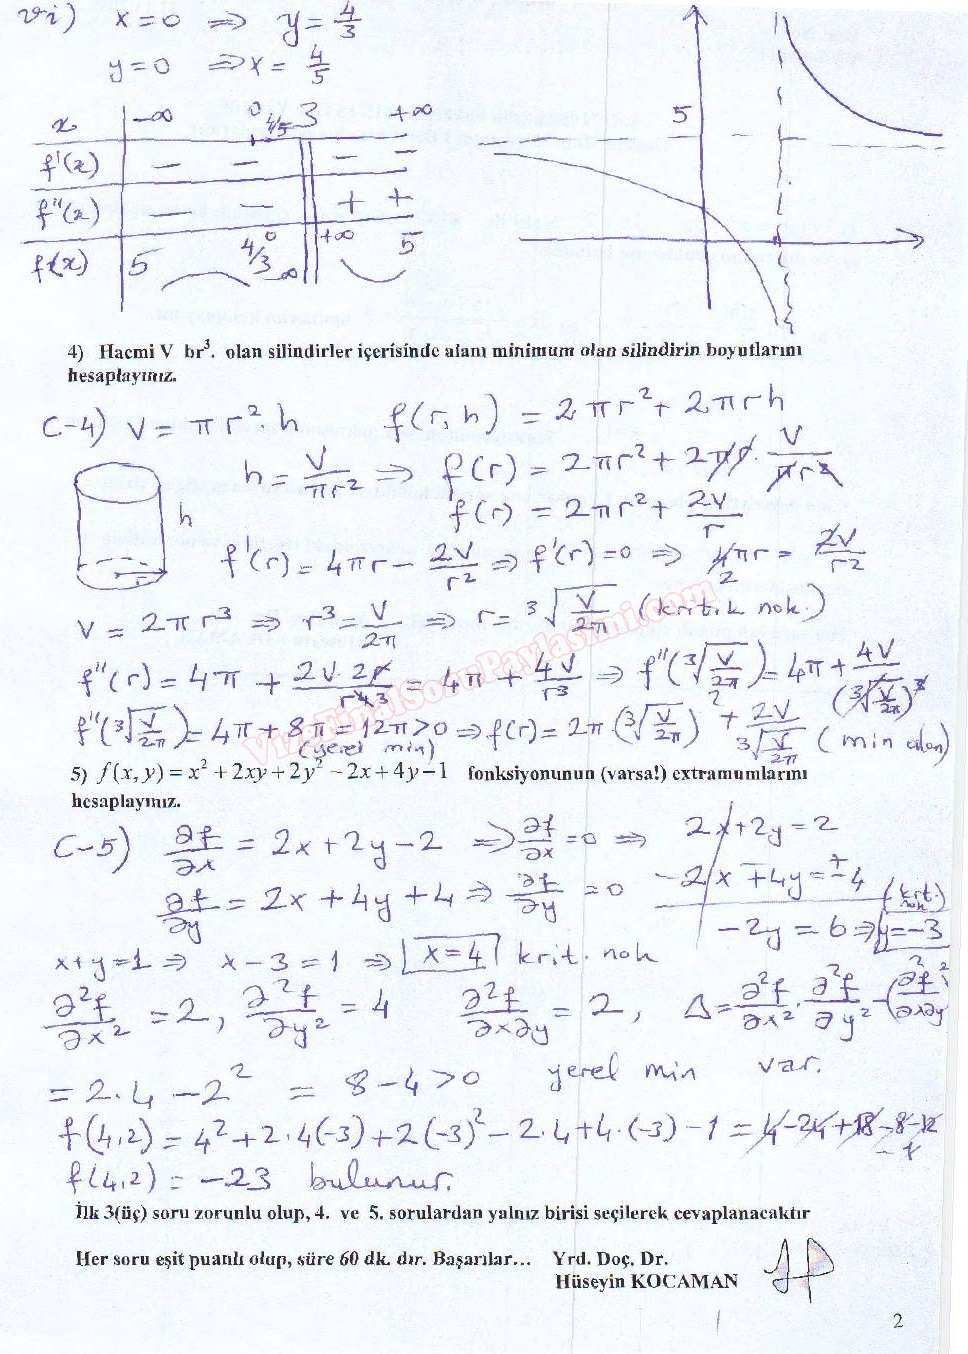 vi) x=0 ⇒ y=4/3
y=0 ⇒ x=4/5
x | -∞ 0 4/5 3 +∞
f'(x) | - - - -
f''(x) | - - + +
f(x) | 5 4/3 0 -∞ +∞ 5
5
4) Hacmi V br³. olan silindirler içerisinde alanı minimum olan silindirin boyutlarını
hesaplayınız.
C-4) V = πr²h f(r,h) = 2πr² + 2πrh
h = V/πr² ⇒ f(r) = 2πr² + 2πr. V/πr²
h
f(r) = 2πr² + 2V/r
f'(r) = 4πr - 2V/r² ⇒ f'(r)=0 ⇒ 4πr = 2V/r²
2
V = 2πr³ ⇒ r³ = V/2π ⇒ r = ³√(V/2π) (kritik nok.)
f''(r) = 4π + 2V.2r/r⁴3 = 4π + 4V/r³ ⇒ f''(³√(V/2π)) = 4π + 4V/(³√(V/2π))³
f''(³√(V/2π)) = 4π + 8π = 12π > 0 ⇒ f(r) = 2π(³√(V/2π))² + 2V/³√(V/2π) (min alan)
(yerel min)
VizeFinalSoruPaylasimi.com
5) f(x,y) = x² + 2xy + 2y² - 2x + 4y - 1 fonksiyonunun (varsa!) extramumlarını
hesaplayınız.
C-5) ∂f/∂x = 2x + 2y - 2 ⇒ ∂f/∂x = 0 ⇒ 2x + 2y = 2
∂f/∂y = 2x + 4y + 4 ⇒ ∂f/∂y = 0 -2x ∓ 4y = ±4
(krt. nok)
-2y = 6 ⇒ y = -3
x+y=1 ⇒ x-3=1 ⇒ x=4 krit. nok
∂²f/∂x² = 2, ∂²f/∂y² = 4 ∂²f/∂x∂y = 2, Δ = ∂²f/∂x² . ∂²f/∂y² - (∂²f/∂x∂y)²
= 2.4 - 2² = 8-4 > 0 yerel min var.
f(4,2) = 4² + 2.4(-3) + 2(-3)² - 2.4 + 4.(-3) - 1 = 4-24+18-8-12
-1
f(4,2) = -23 bulunur.
İlk 3(üç) soru zorunlu olup, 4. ve 5. sorulardan yalnız birisi seçilerek cevaplanacaktır
Her soru eşit puanlı olup, süre 60 dk. dır. Başarılar... Yrd. Doç. Dr.
Hüseyin KOCAMAN
2